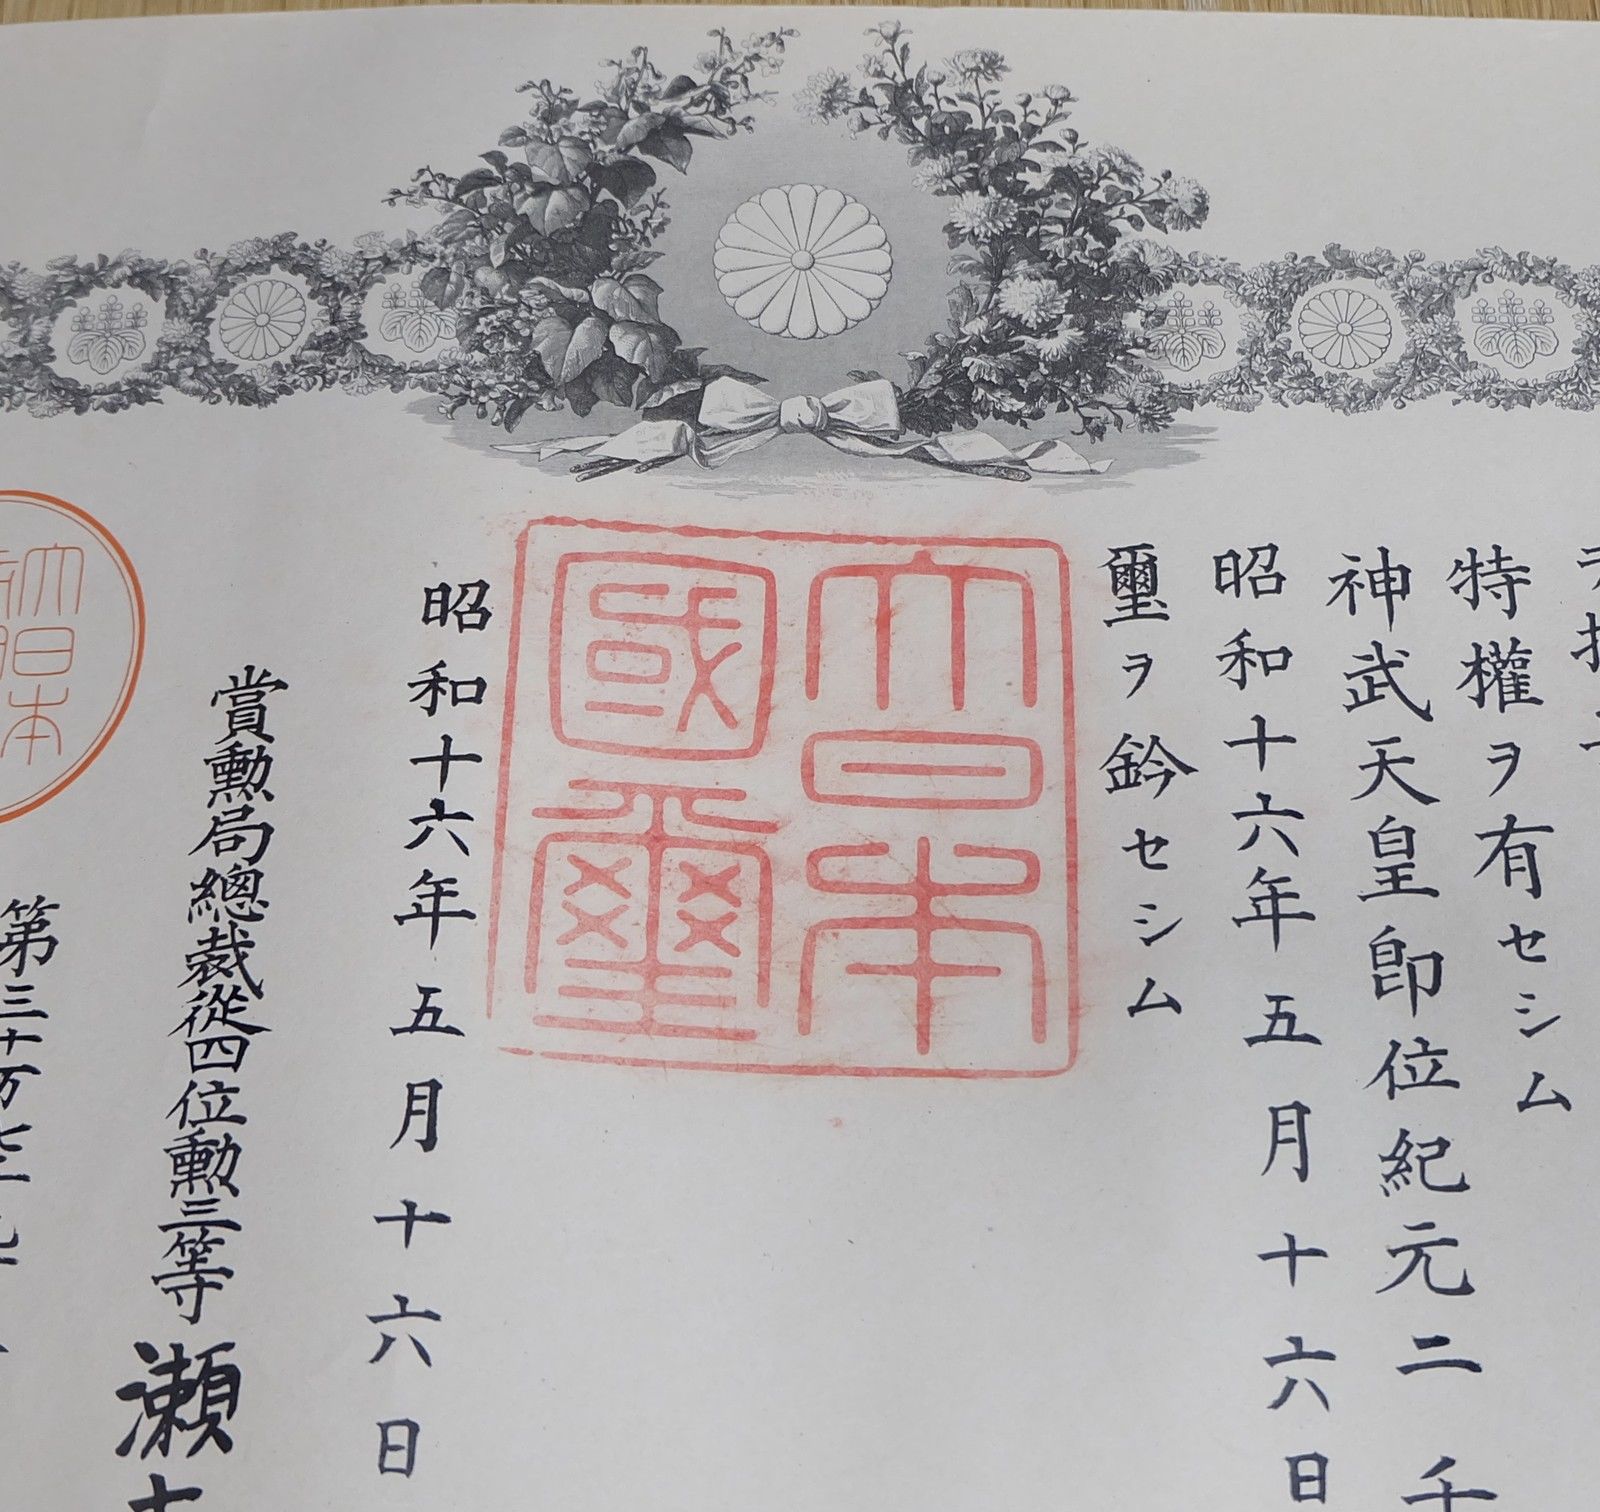 特權ヲ有セシム
神武天皇卽位紀元二千
昭和十六年五月十六日
璽ヲ鈐セシム
大日本
國璽
昭和十六年五月十六日
賞勳局總裁從四位勳三等瀬
大日本
第三十万七